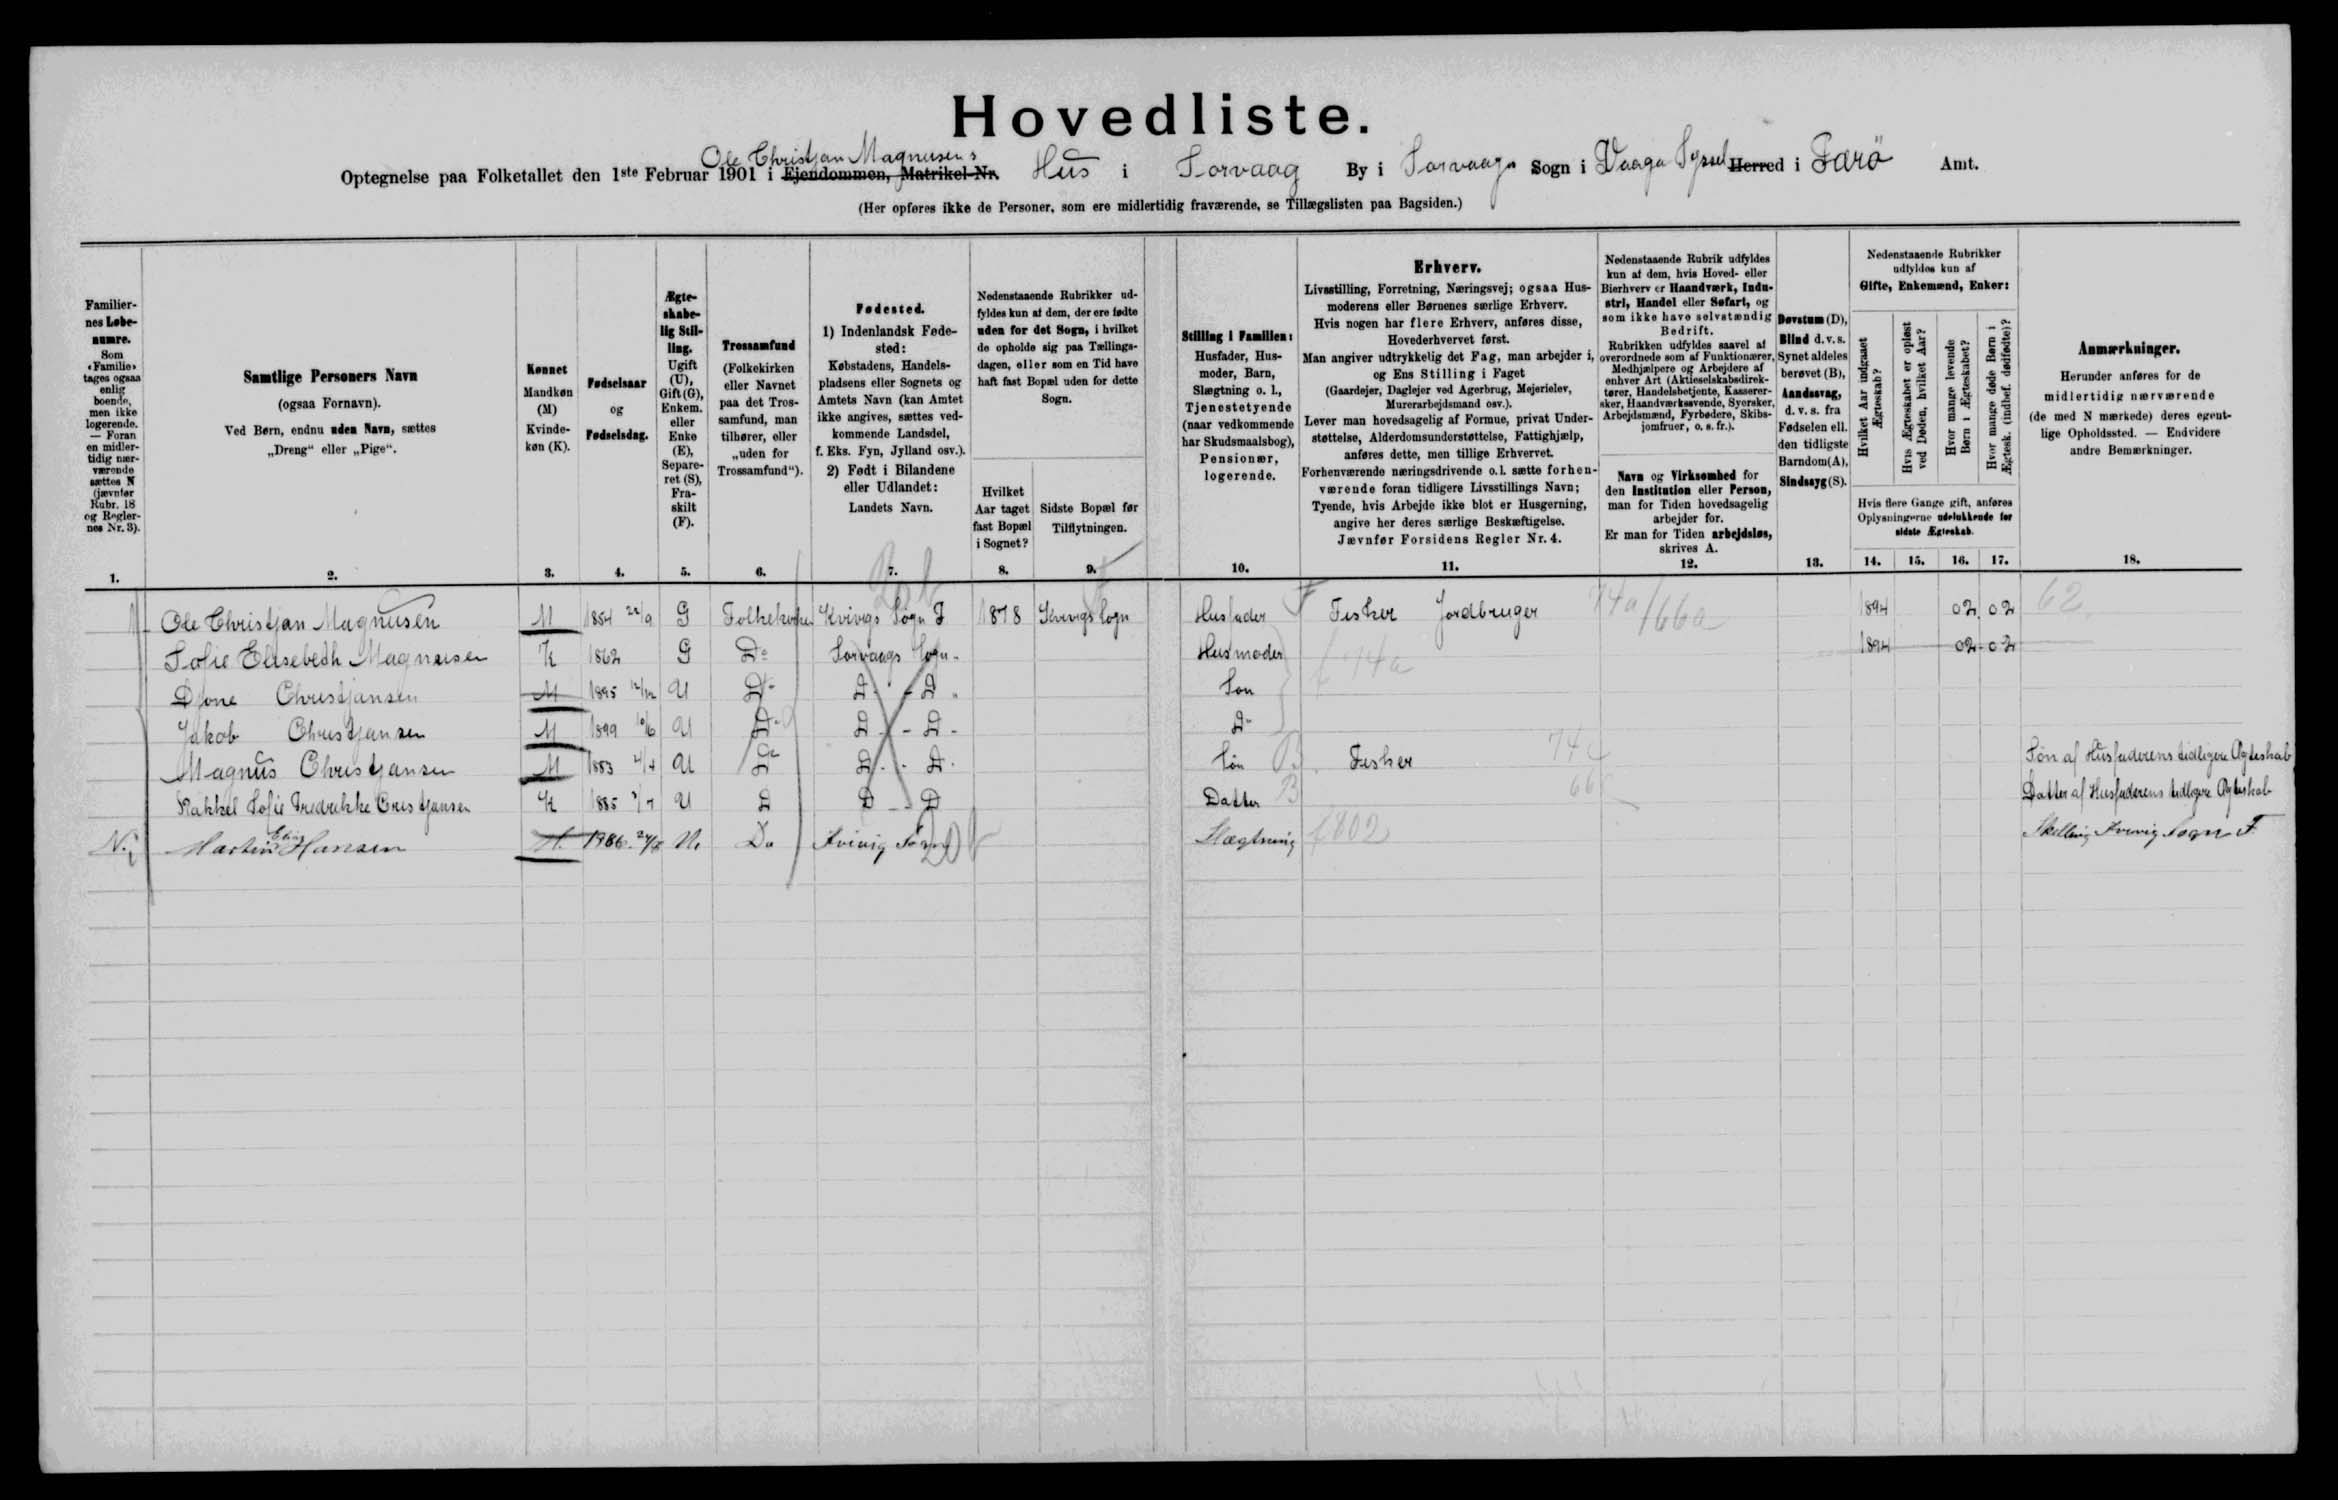 Hovedliste.
Ole Christjan Magnusens
Optegnelse paa Folketallet den 1ste Februar 1901 i Ejendommen, Matrikel-Nr. Hus i Sorvaag By i Sorvaags Sogn i Vaagø Syssel Herred i Færø Amt.
(Her opføres ikke de Personer, som ere midlertidig fraværende, se Tillægslisten paa Bagsiden.)
Familiernes Løbenumre.
Som «Familie» tages ogsaa enlig boende, men ikke logerende. — Foran en midlertidig nærværende sættes N (jævnfør Rubr. 18 og Reglernes Nr. 3).
Samtlige Personers Navn
(ogsaa Fornavn).
Ved Børn, endnu uden Navn, sættes
„Dreng“ eller „Pige“.
Kønnet
Mandkøn (M)
Kvindekøn (K).
Fødselsaar
og
Fødselsdag.
Ægteskabelig Stilling.
Ugift (U), Gift (G), Enkem. eller Enke (E), Separeret (S), Fraskilt (F).
Trossamfund
(Folkekirken eller Navnet paa det Trossamfund, man tilhører, eller „uden for Trossamfund“).
Fødested.
1) Indenlandsk Fødested:
Købstadens, Handelspladsens eller Sognets og Amtets Navn (kan Amtet ikke angives, sættes vedkommende Landsdel, f. Eks. Fyn, Jylland osv.).
2) Født i Bilandene eller Udlandet:
Landets Navn.
Nedenstaaende Rubrikker udfyldes kun af dem, der ere fødte uden for det Sogn, i hvilket de opholde sig paa Tællingsdagen, eller som en Tid have haft fast Bopæl uden for dette Sogn.
Hvilket Aar taget fast Bopæl i Sognet?
Sidste Bopæl før Tilflytningen.
Stilling i Familien:
Husfader, Husmoder, Barn, Slægtning o. l., Tjenestetyende (naar vedkommende har Skudsmaalsbog), Pensionær, logerende.
Erhverv.
Livsstilling, Forretning, Næringsvej; ogsaa Husmoderens eller Børnenes særlige Erhverv.
Hvis nogen har flere Erhverv, anføres disse, Hovederhvervet først.
Man angiver udtrykkelig det Fag, man arbejder i, og Ens Stilling i Faget
(Gaardejer, Daglejer ved Agerbrug, Mejerielev, Murerarbejdsmand osv.).
Lever man hovedsagelig af Formue, privat Understøttelse, Alderdomsunderstøttelse, Fattighjælp, anføres dette, men tillige Erhvervet.
Forhenværende næringsdrivende o. l. sætte forhenværende foran tidligere Livsstillings Navn;
Tyende, hvis Arbejde ikke blot er Husgerning, angive her deres særlige Beskæftigelse.
Jævnfør Forsidens Regler Nr. 4.
Nedenstaaende Rubrik udfyldes kun af dem, hvis Hoved- eller Bierhverv er Haandværk, Industri, Handel eller Søfart, og som ikke have selvstændig Bedrift.
Rubrikken udfyldes saavel af overordnede som af Funktionærer, Medhjælpere og Arbejdere af enhver Art (Aktieselskabsdirektører, Handelsbetjente, Kasserersker, Haandværkssvende, Syersker, Arbejdsmænd, Fyrbødere, Skibsjomfruer, o. s. fr.).
Navn og Virksomhed for den Institution eller Person, man for Tiden hovedsagelig arbejder for.
Er man for Tiden arbejdsløs, skrives A.
Døvstum (D), Blind d. v. s. Synet aldeles berøvet (B), Aandssvag, d. v. s. fra Fødselen ell. den tidligste Barndom (A), Sindssyg (S).
Nedenstaaende Rubrikker udfyldes kun af Gifte, Enkemænd, Enker:
Hvilket Aar indgaaet Ægteskab?
Hvis Ægteskabet er opløst ved Døden, hvilket Aar?
Hvor mange levende Børn i Ægteskabet?
Hvor mange døde Børn i Ægtesk. (indbef. dødfødte)?
Hvis flere Gange gift, anføres Oplysningerne udelukkende for sidste Ægteskab.
Anmærkninger.
Herunder anføres for de midlertidig nærværende (de med N mærkede) deres egentlige Opholdssted. — Endvidere andre Bemærkninger.
1. 2. 3. 4. 5. 6. 7. 8. 9. 10. 11. 12. 13. 14. 15. 16. 17. 18.
1 Ole Christjan Magnusen M 1854 22/9 G Folkekirken Kvivigs Sogn F 1878 Kvivigs Sogn Husfader F Fisker Jordbruger 74a/66a 1894 02 02 62
Sofie Elisebeth Magnusen K 1862 G Do Sorvaags Sogn Husmoder f 74a 1894 02 02
Djone Christjansen M 1895 12/12 U Do D - D Son
Jakob Christjansen M 1899 10/6 U Do D - D Do
Magnus Christjansen M 1883 U Do D - D Søn B Fisker 74c Søn af Husfaderens tidligere Ægteskab
Rakkel Sofie Fredrikke Cristjansen K 1885 U D D - D Datter B 66 Datter af Husfaderens tidligere Ægteskab
N. Martin Elias Hansen M. 1986 U. Do Kvivig Sogn Slægtning f802 Skelling Kvivig Sogn F.